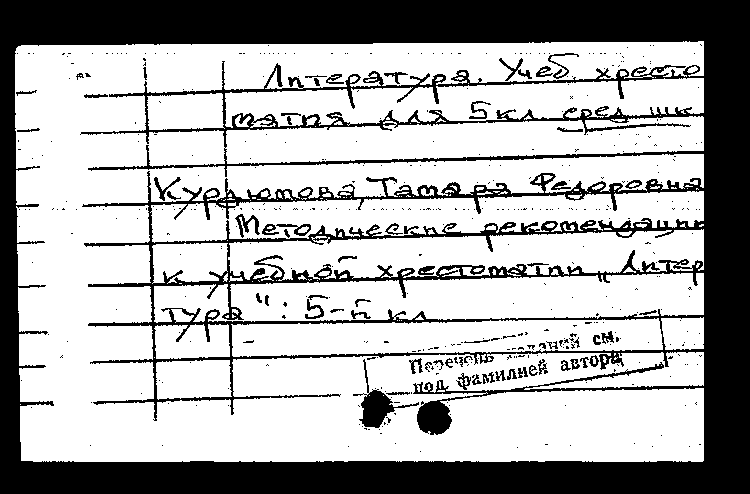 Литература. Учеб хресто
матия для 5 кл. сред шк
Курдюмова, Тамара Федоровна
Методические рекомендации
к учебной хрестоматии „Литер
тура“: 5-й кл
Перечень изданий см.
под фамилией автора